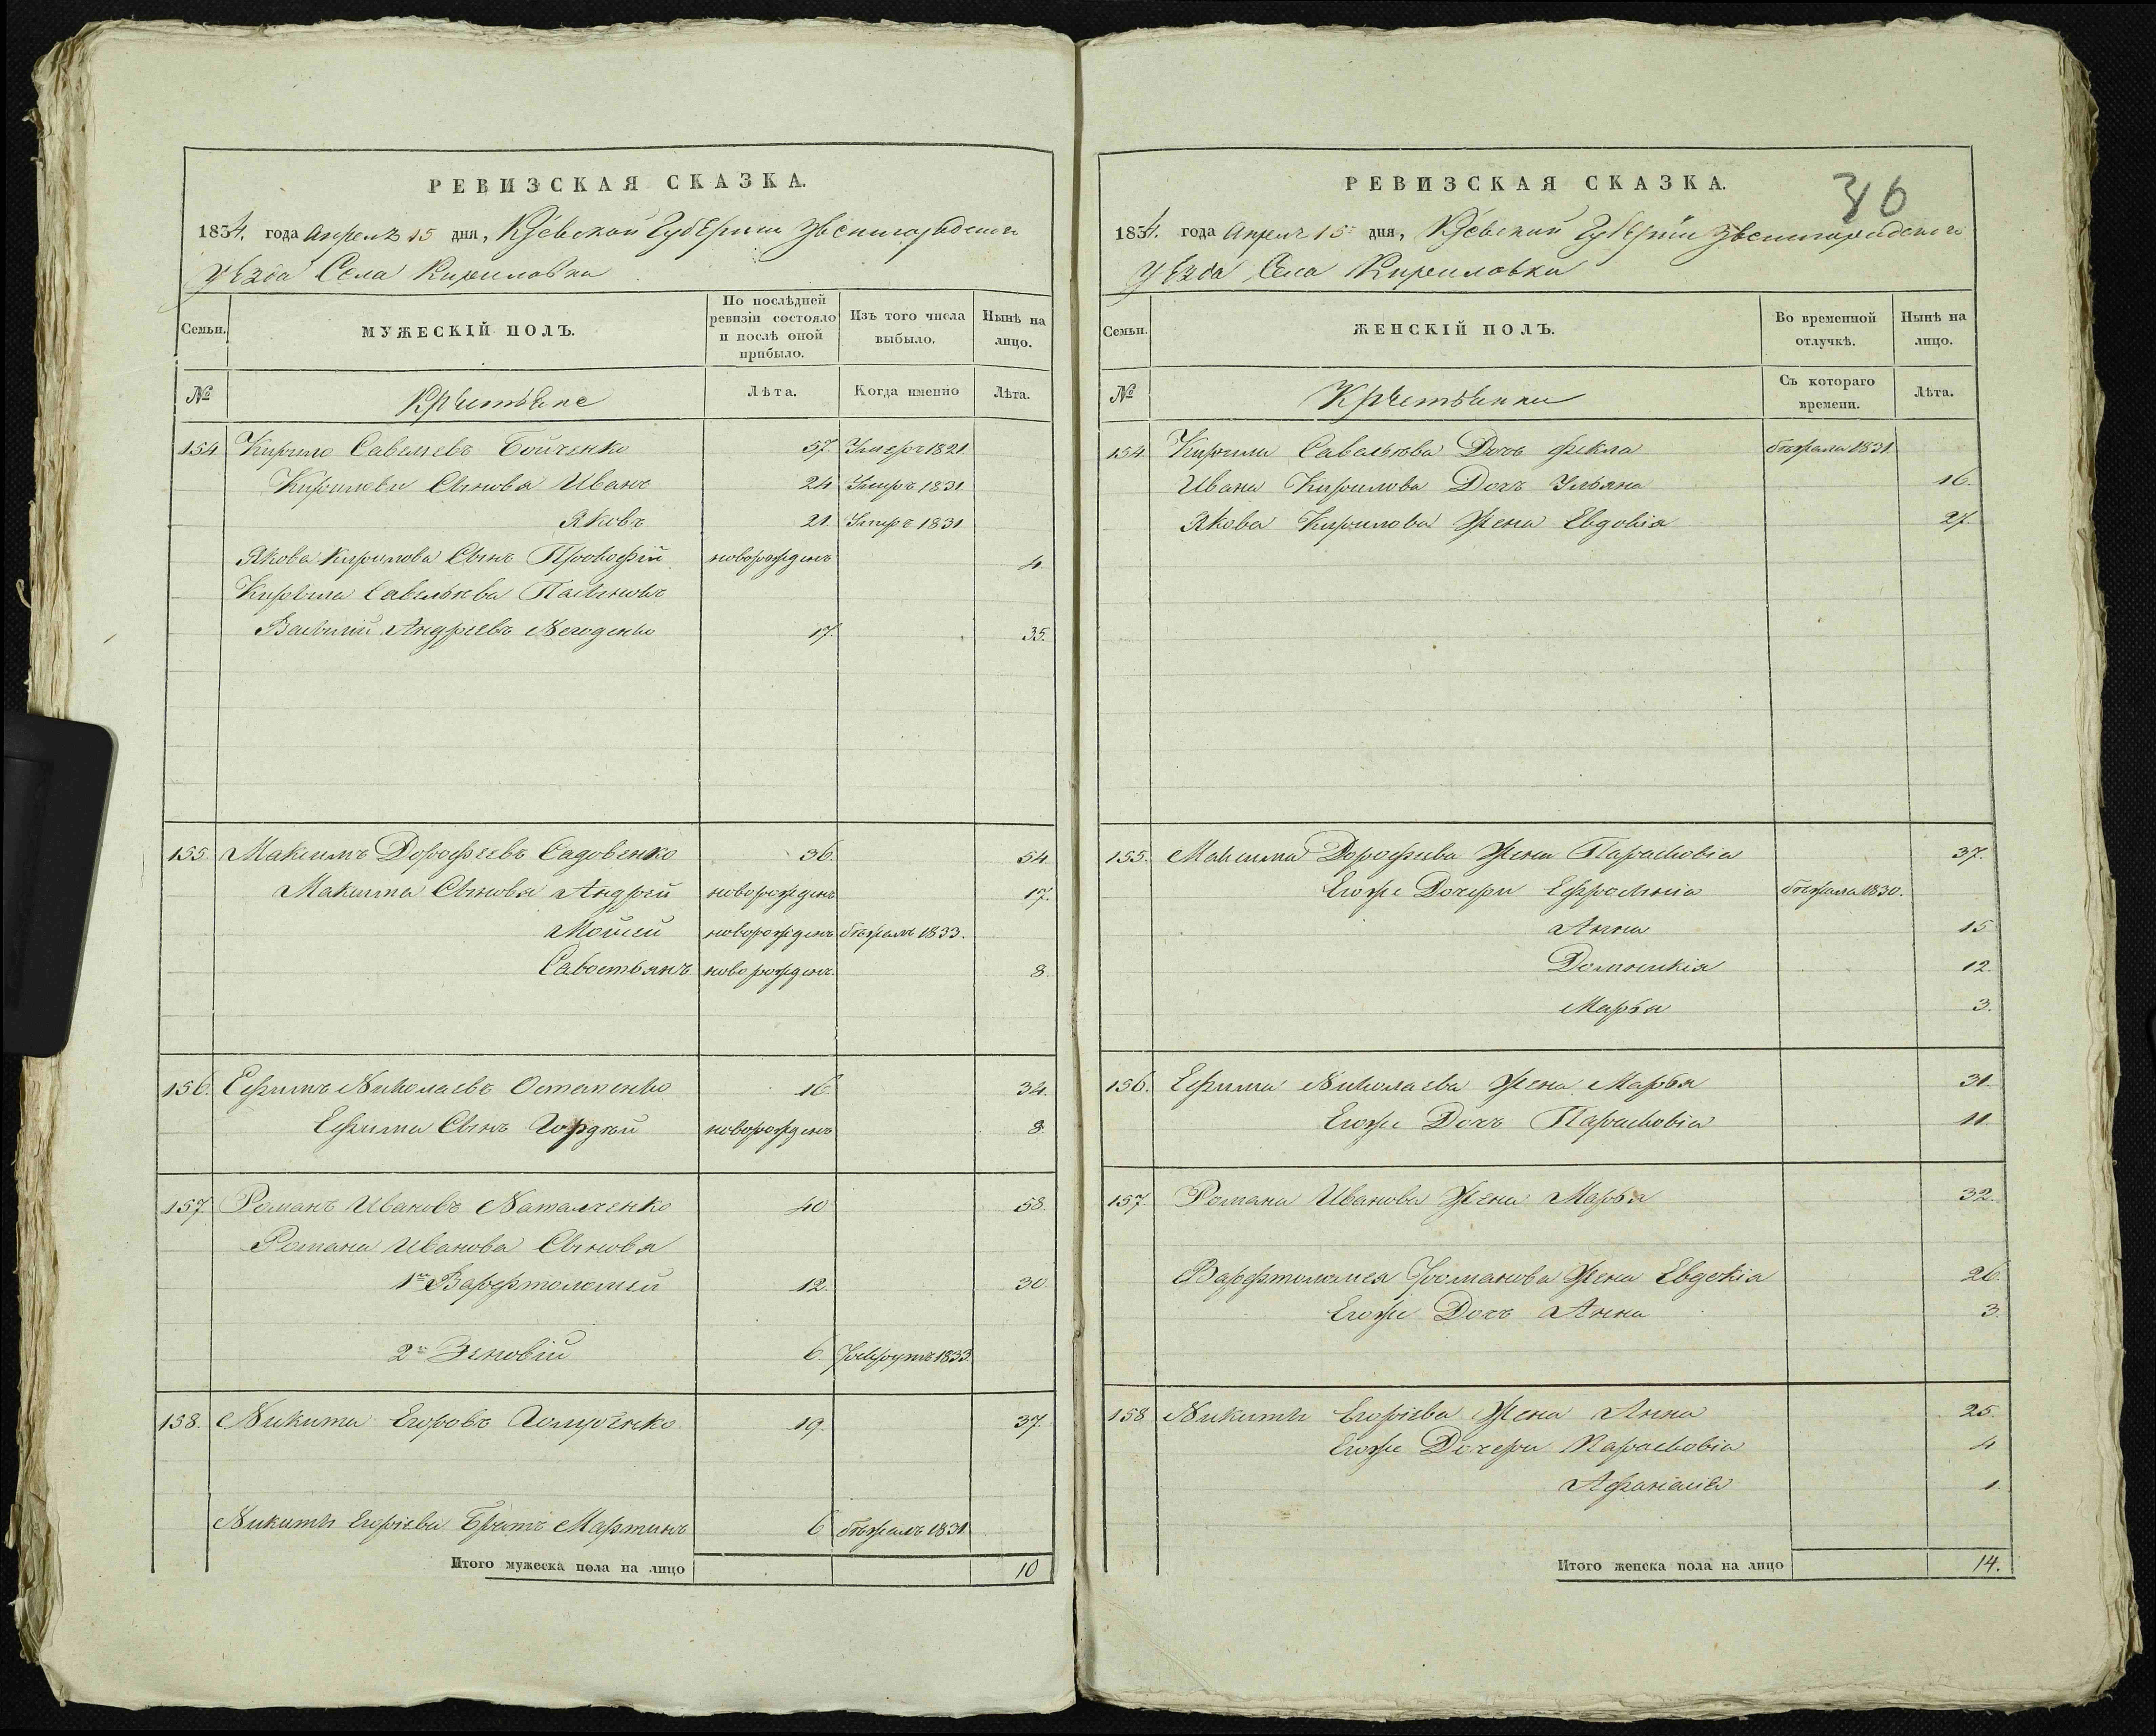 РЕВИЗСКАЯ СКАЗКА.
1834. года Апреля 15 дня, Кіевской Губерніи Звенигородского
уезда Села Кириловки
Семьи.
МУЖЕСКІЙ ПОЛЪ.
По послѣдней ревизіи состояло и послѣ оной прибыло.
Изъ того числа выбыло.
Нынѣ на лицо.
№ Крестьяне Лѣта. Когда именно Лѣта.
154 Кирило Савелиевъ Бойченко 57. Умеръ 1821.
Кирилови Сыновя Иванъ 24 Умиръ 1831
Яковъ 21. Умиръ 1831
Якова Кирилова Сынъ Прокофій новорожденъ 4.
Кирила Савельева Пасынокъ
Василий Андреевъ Негоденко 17. 35.
155. Максимъ Дорофеевъ Садовенко 36. 54.
Максима Сыновя Андрей новорожденъ 17.
Мойсей новорожденъ бежалъ 1833.
Савостьянъ новорожденъ 8.
156. Ефимъ Николаевъ Остапенко 16. 34.
Ефима Сынъ Гордѣй новорожденъ 8.
157. Романъ Ивановъ Наталченко 40 58.
Романа Иванова Сыновя
1й Варфтоломей 12. 30.
2й Зеновій 6. Рекрутъ 1833.
158. Никита Егоровъ 19. 37.
Никиты Егориева Братъ Мартинъ 6 бежалъ 1831.
Итого мужеска пола на лицо 10
РЕВИЗСКАЯ СКАЗКА.
36
1834. года Апреля 15 дня, Кіевской Губерніи Звенигородского
уезда Села Кириловки
Семьи.
ЖЕНСКІЙ ПОЛЪ.
Во временной отлучкѣ.
Нынѣ на лицо.
№ Крестьянки Съ котораго времени. Лѣта.
154. Кирила Савельева Дочъ Фекла бежала 1831.
Ивана Кирилова Дочъ Ульяна 16.
Якова Кирилова Жена Евдокія 27.
155. Максима Дорофиева Жена Парасковіа 37.
Егоже Дочери Ефросиніа бежала 1830.
Анна 15
Домникія 12.
Марья 3.
156. Ефима Николаева Жена Марья 31.
Егоже Дочъ Парасковіа 11.
157. Романа Иванова Жена Марья 32.
Варфтоломея Романова Жена Евдокіа 26.
Егоже Дочъ Анна 3.
158 Никиты Егориева Жена Анна 25.
Егоже Дочери Парасковіа 4
Афанасія 1.
Итого женска пола на лицо 14.